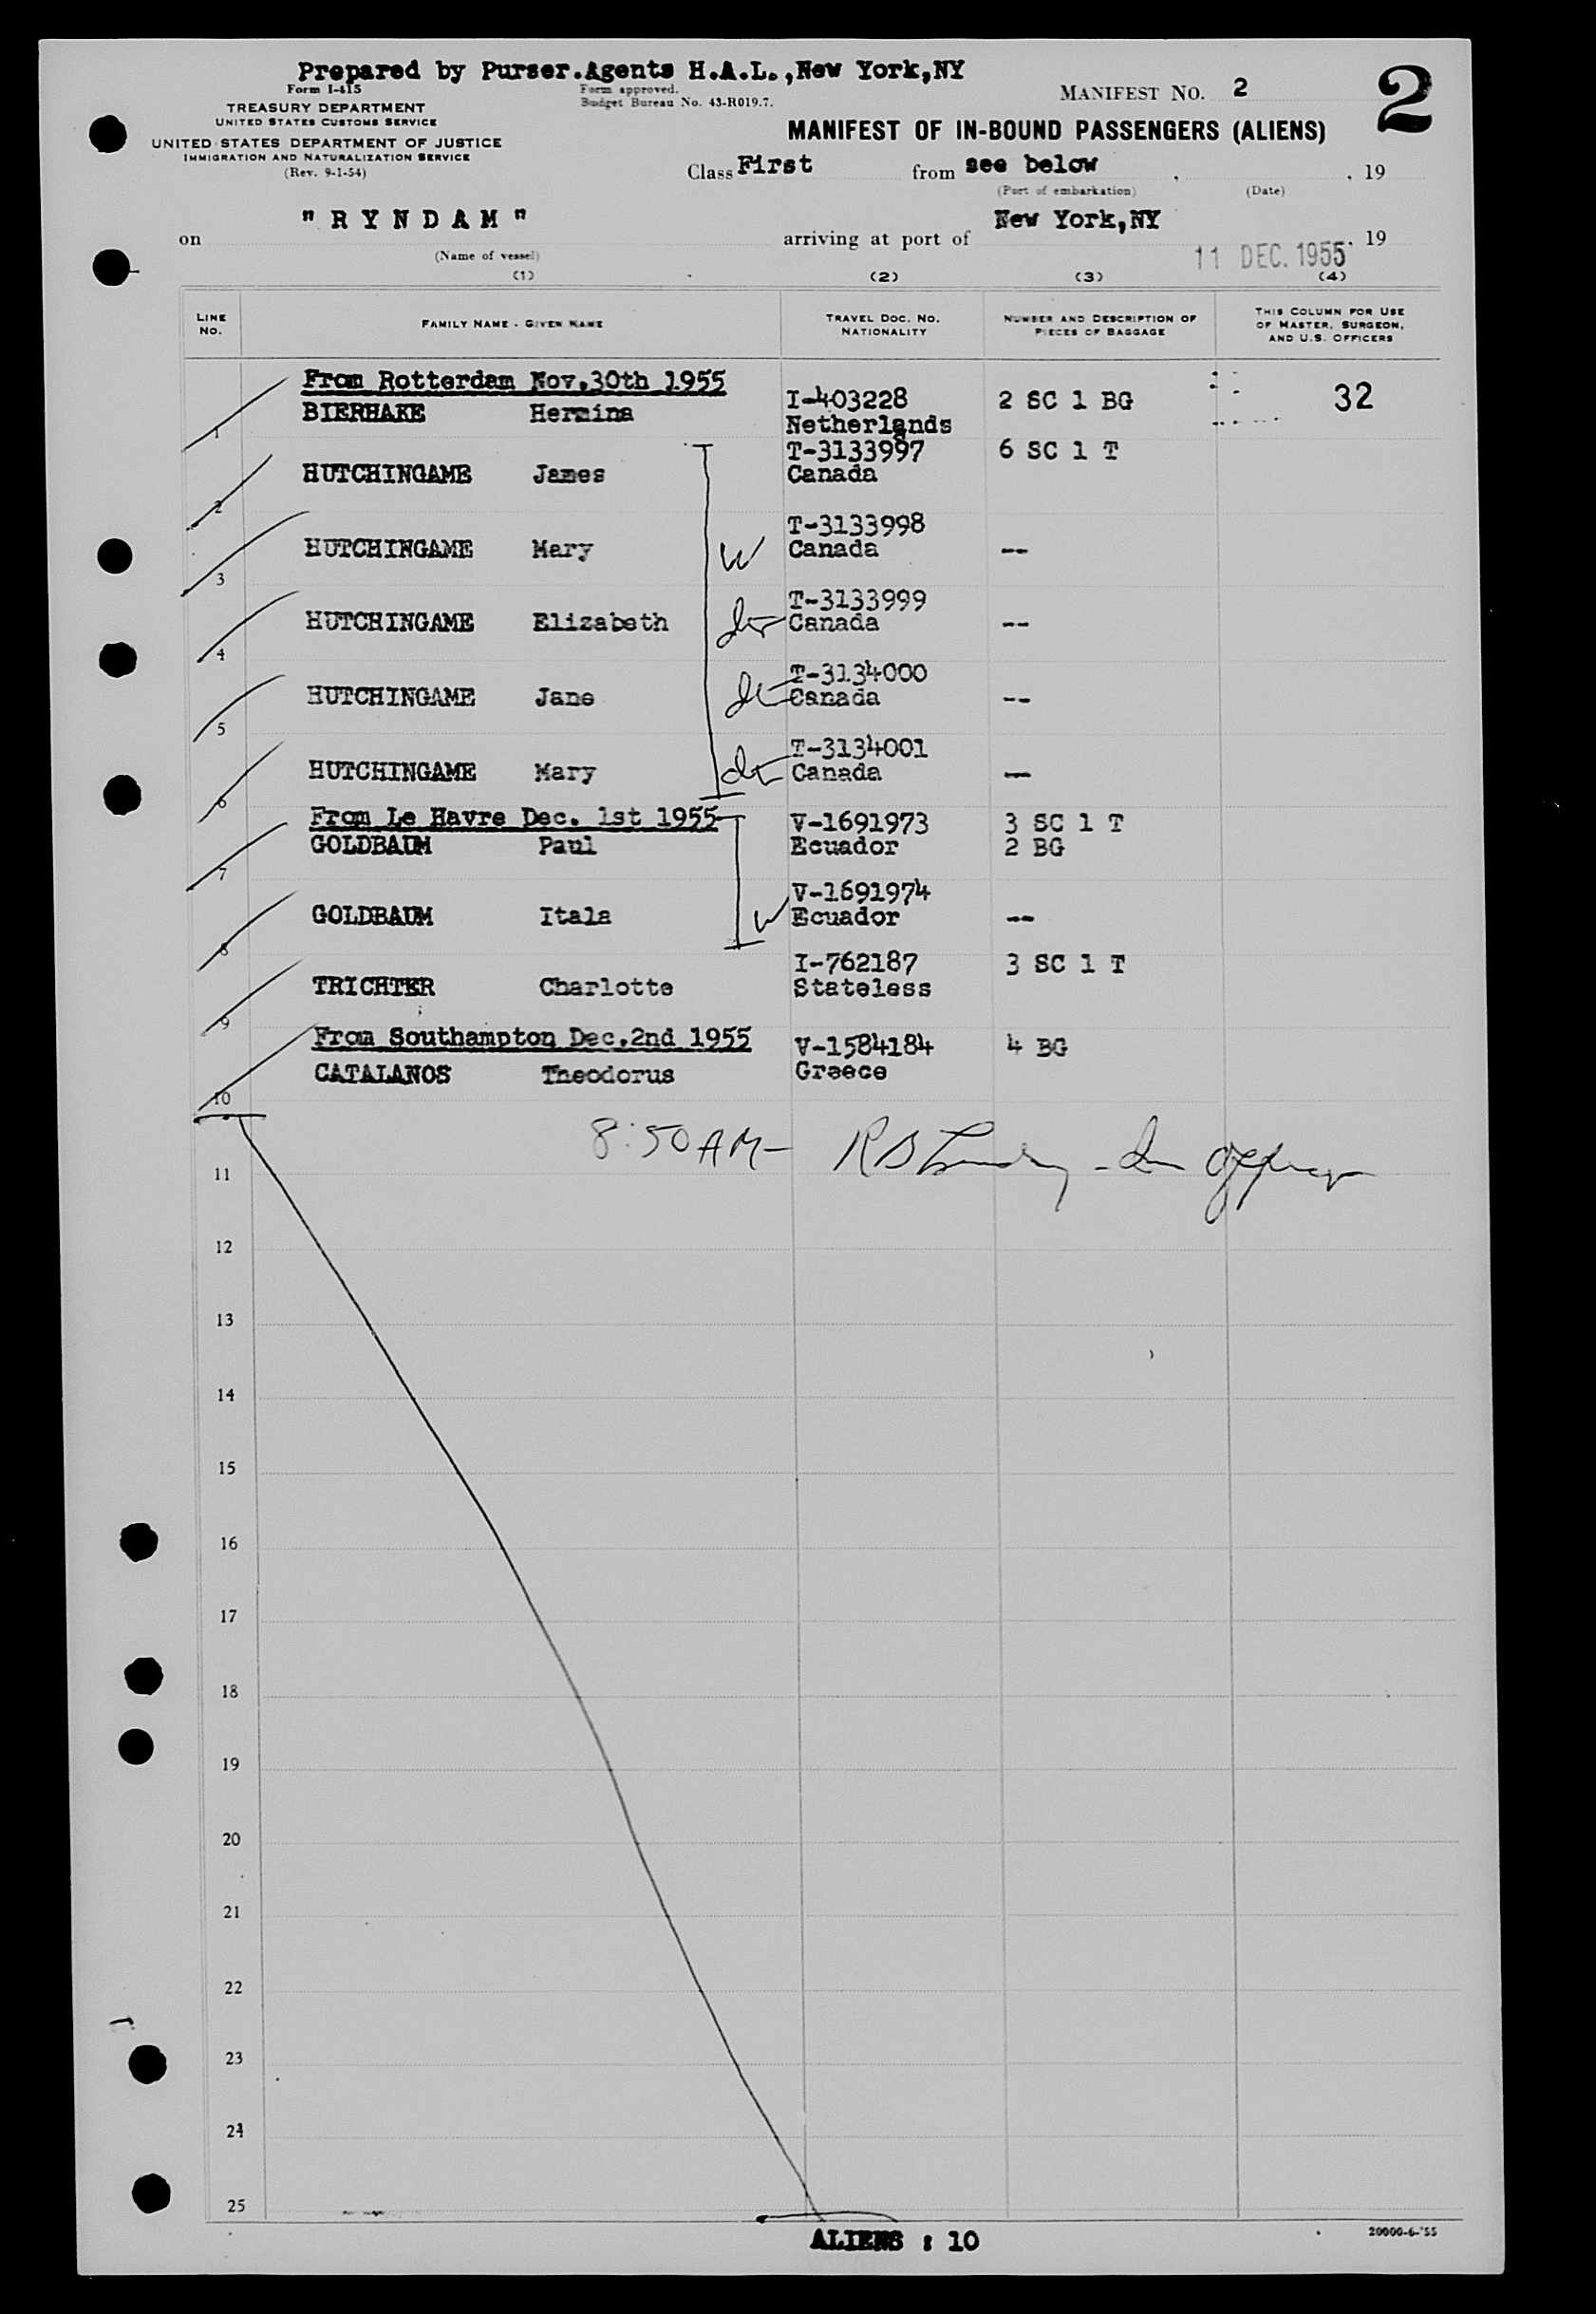 Prepared by Purser.Agents H.A.L.,New York,NY
Form I-415
TREASURY DEPARTMENT
UNITED STATES CUSTOMS SERVICE
UNITED STATES DEPARTMENT OF JUSTICE
IMMIGRATION AND NATURALIZATION SERVICE
(Rev. 9-1-54)
Form approved.
Budget Bureau No. 43-R019.7.
MANIFEST NO. 2
2
MANIFEST OF IN-BOUND PASSENGERS (ALIENS)
Class First from see below , , 19
(Port of embarkation) (Date)
on " R Y N D A M " arriving at port of New York,NY , 19
(Name of vessel)
11 DEC. 1955
(1) (2) (3) (4)
LINE NO. FAMILY NAME - GIVEN NAME TRAVEL DOC. NO. NATIONALITY NUMBER AND DESCRIPTION OF PIECES OF BAGGAGE THIS COLUMN FOR USE OF MASTER, SURGEON, AND U.S. OFFICERS
From Rotterdam Nov.30th 1955
1 BIERHAKE Hermina I-403228 Netherlands 2 SC 1 BG 32
2 HUTCHINGAME James T-3133997 Canada 6 SC 1 T
3 HUTCHINGAME Mary W T-3133998 Canada --
4 HUTCHINGAME Elizabeth T-3133999 Canada --
5 HUTCHINGAME Jane T-3134000 Canada --
6 HUTCHINGAME Mary T-3134001 Canada --
From Le Havre Dec. 1st 1955
7 GOLDBAUM Paul V-1691973 Ecuador 3 SC 1 T 2 BG
8 GOLDBAUM Itala W V-1691974 Ecuador --
9 TRICHTER Charlotte I-762187 Stateless 3 SC 1 T
From Southampton Dec.2nd 1955
10 CATALANOS Theodorus V-1584184 Greece 4 BG
8:50 AM - R B
11
12
13
14
15
16
17
18
19
20
21
22
23
24
25
ALIENS : 10
20000-6-'55